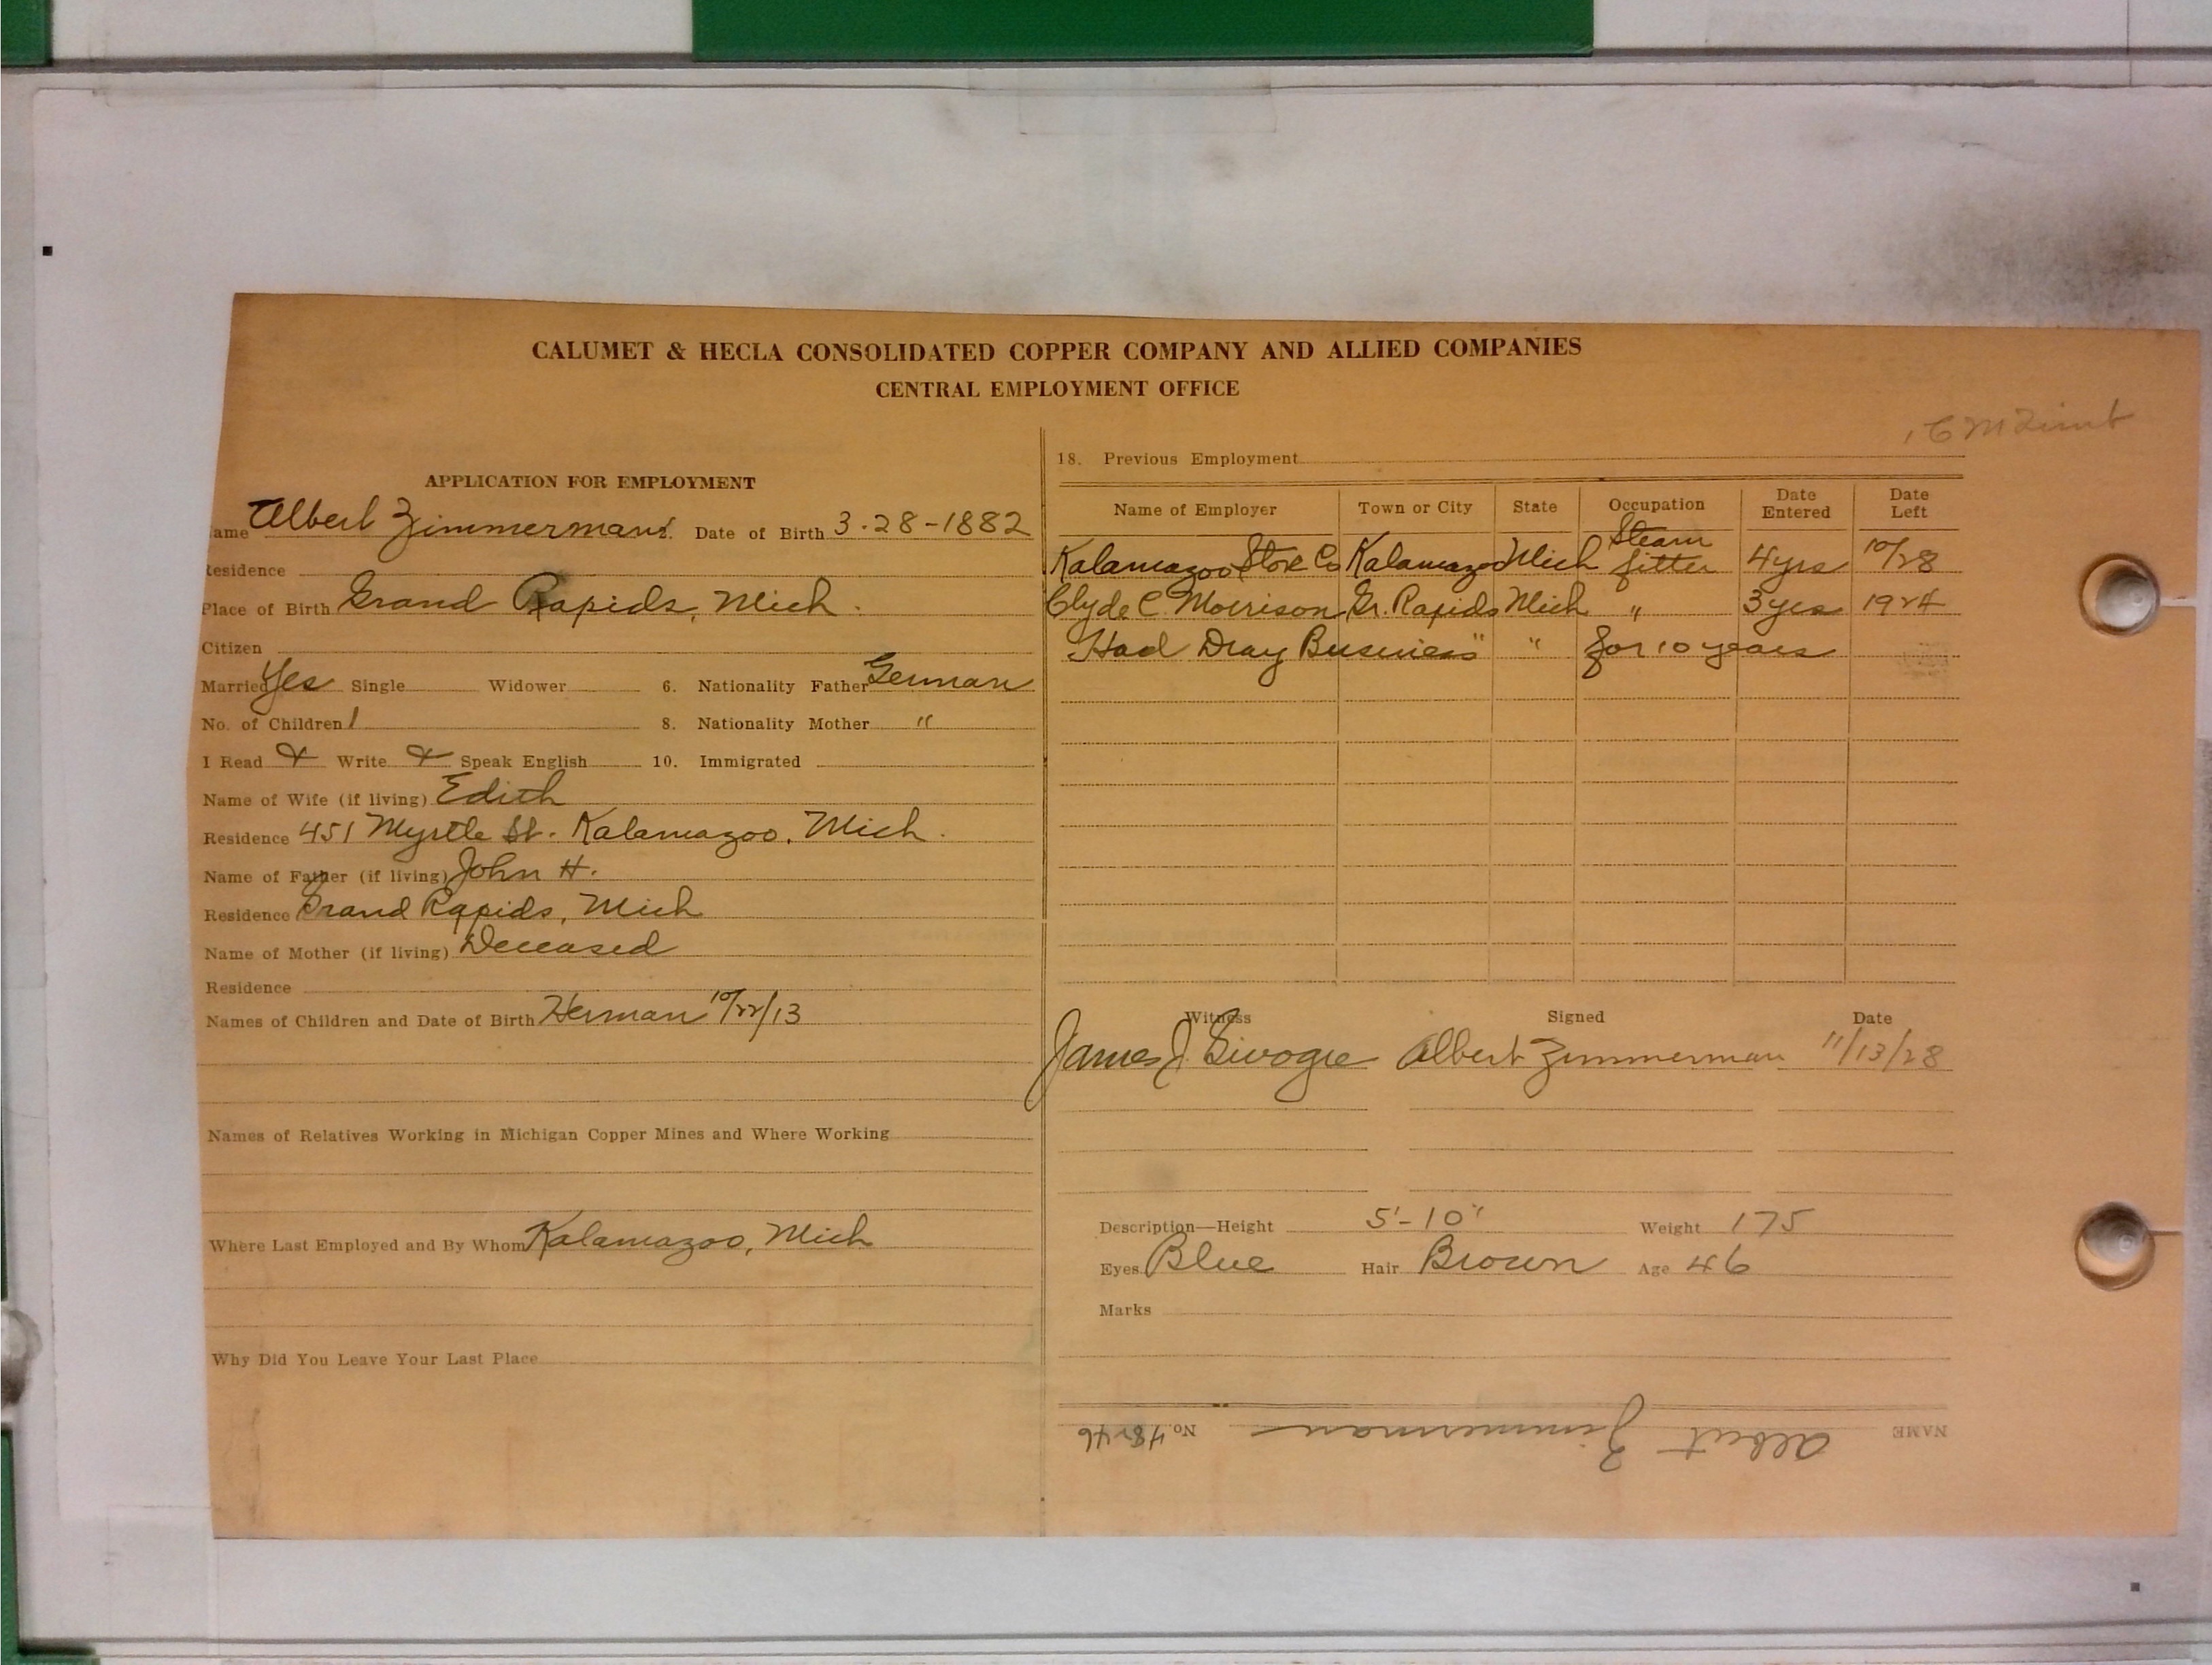 CALUMET & HECLA CONSOLIDATED COPPER COMPANY AND ALLIED COMPANIES
CENTRAL EMPLOYMENT OFFICE
APPLICATION FOR EMPLOYMENT
ame Albert Zimmerman Date of Birth 3-28-1882
Residence
Place of Birth Grand Rapids, Mich.
Citizen
Married Yes Single Widower 6. Nationality Father German
No. of Children 1 8. Nationality Mother "
I Read & Write & Speak English 10. Immigrated
Name of Wife (if living) Edith
Residence 451 Myrtle St. Kalamazoo, Mich.
Name of Father (if living) John H.
Residence Grand Rapids, Mich
Name of Mother (if living) Deceased
Residence
Names of Children and Date of Birth Herman 10/22/13
Names of Relatives Working in Michigan Copper Mines and Where Working
Where Last Employed and By Whom Kalamazoo, Mich
Why Did You Leave Your Last Place
18. Previous Employment
Name of Employer Town or City State Occupation Date Entered Date Left
Kalamazoo Stove Co Kalamazoo Mich Steam fitter 4 yrs 10/28
Clyde C. Morrison Gr. Rapids Mich " 3 yrs 1924
Had Dray Business " " for 10 years
Witness Signed Date
James J. Albert Zimmerman 11/13/28
Description—Height 5'-10" Weight 175
Eyes Blue Hair Brown Age 46
Marks
NAME Albert Zimmerman No. 48246